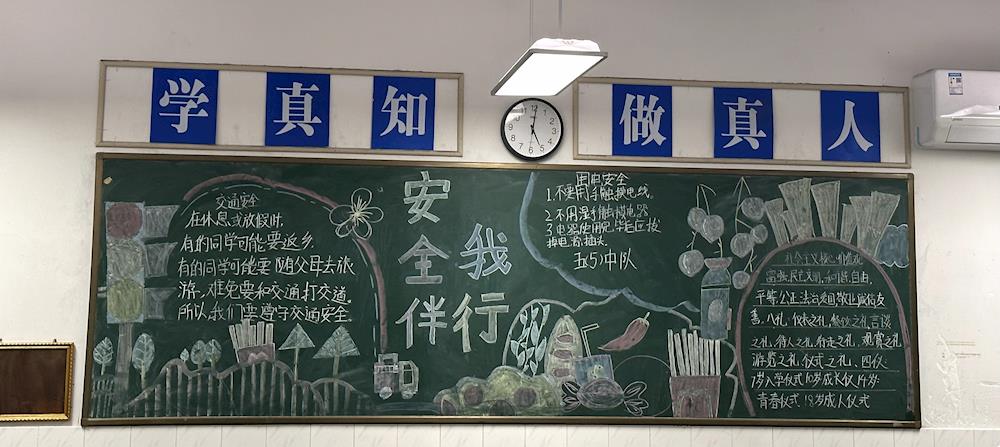 学真知
做真人
交通安全
在休息或放假时,
有的同学可能要返乡,
有的同学可能要随父母去旅
游,难免要和交通打交道。
所以,我们要遵守交通安全
安全伴
我行
用电安全
1.不要用手触摸电线。
2.不用湿手触摸电器
3.电器使用完毕后应拔
掉电源插头。
五(5)中队
社会主义核心价值观
富强民主文明,和谐,自由,
平等公正法治爱国敬业诚信友
善。八礼:仪表之礼,餐饮之礼言谈
之礼,待人之礼,行走之礼,观赏之礼
游览之礼,仪式之礼,四仪:
7岁入学仪式10岁成长仪14岁
青春仪式18岁成人仪式
12
1
2
3
4
5
6
7
8
9
10
11